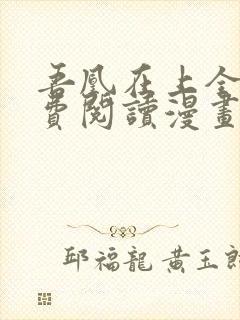 吾凰在上全
費閱讀漫畫
邱福龍 黃玉郎